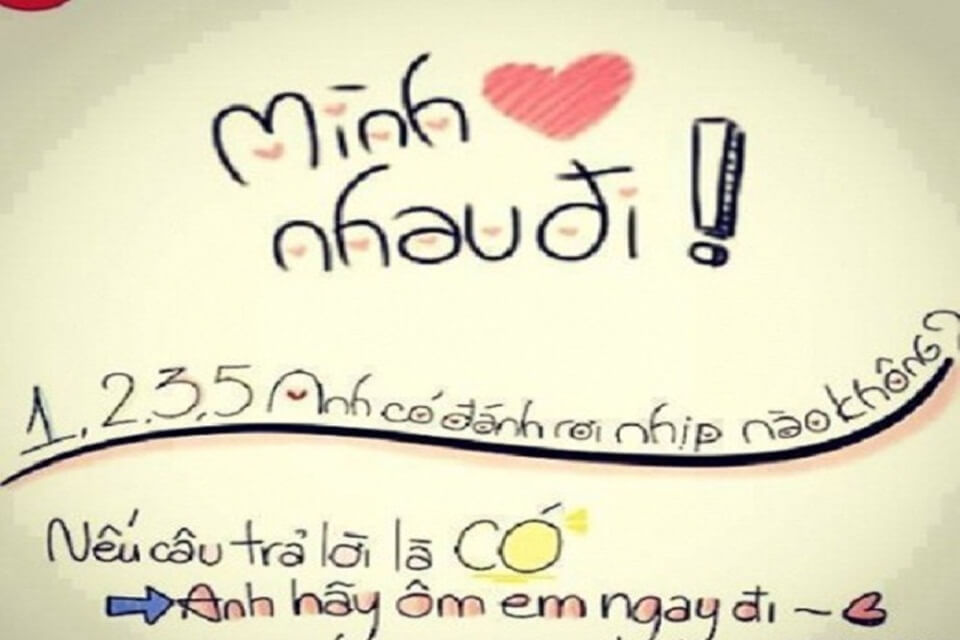 Mình
nhau đi !
1, 2, 3, 5 Anh có đánh rơi nhịp nào không?
Nếu câu trả lời là CÓ
Anh hãy ôm em ngay đi ~